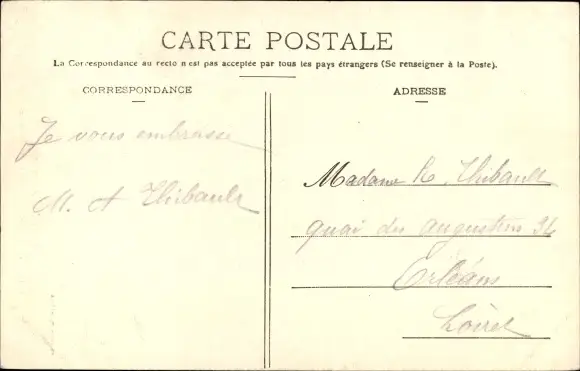 CARTE POSTALE
La Correspondance au recto n'est pas acceptée par tous les pays étrangers (Se renseigner à la Poste).
CORRESPONDANCE
ADRESSE
Je vous embrasse
M. A Thibault
Madame R. Thibault
Quai des Augustins 34
Orléans
Loiret